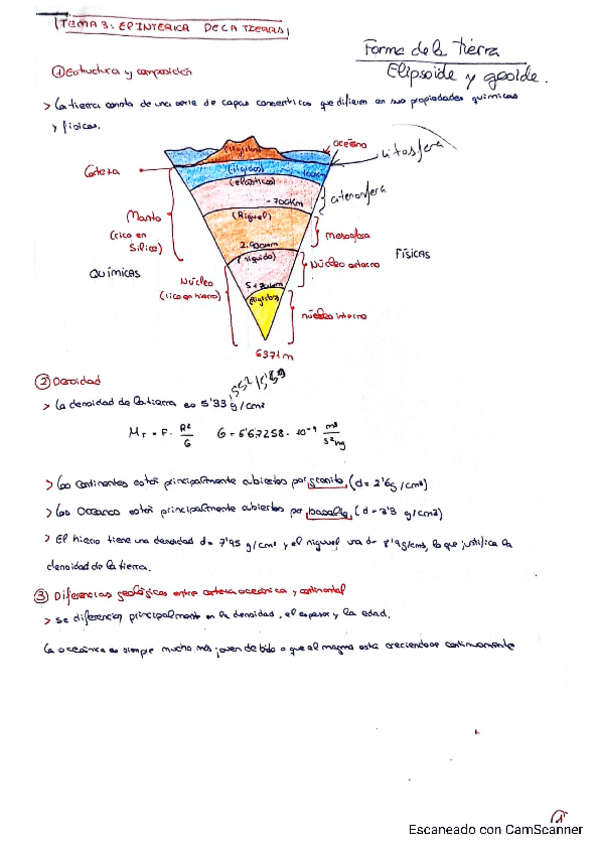 TEMA 3: EP INTERICA DE LA TIERRA
Forma de la tierra
Elipsoide y geoide.
① Estructura y composición
> La tierra consta de una serie de capas concentricas que difieren en sus propiedades químicas
y físicas.
(Rígidos)
océano
Litosfera
Corteza
(rígidos)
100km
(elásticos)
- 700km
atenosfera
Manto
(rico en
Silice)
(Rigido)
mesosfera
2.900km
QUÍMICAS
FÍSICAS
Núcleo
(rico en hierro)
(liquido)
Núcleo externo
(Rigidos)
núcleo interno
6371 m
② Densidad
> La densidad de la tierra es 5'33 g/cm³
M_T = F. R²/G G = 6'67258 · 10⁻⁹ m³/s²kg
> Los continentes están principalmente cubiertos por granito (d = 2'6g/cm³)
> Los Oceanos están principalmente cubiertos por basalto (d = 3'3 g/cm³)
> El hierro tiene una densidad d= 7'95 g/cm³ y el niquel una d= 8'9g/cm³, lo que justifica la
densidad de la tierra.
③ Diferencias geológicas entre corteza oceánica y continental
> Se diferencian principalmente en la densidad, el espesor y la edad.
La oceánica es siempre mucho más joven debido a que el magma está creciendose continuamente
1
Escaneado con CamScanner